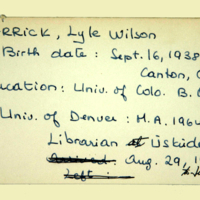 ERRICK, Lyle Wilson
Birth date : Sept. 16, 1938
Canton, 
ucation: Univ. of Colo. B.
Univ. of Denver : M.A. 196
Librarian at Üsküd
Arrived: Aug. 29, 1
Left :